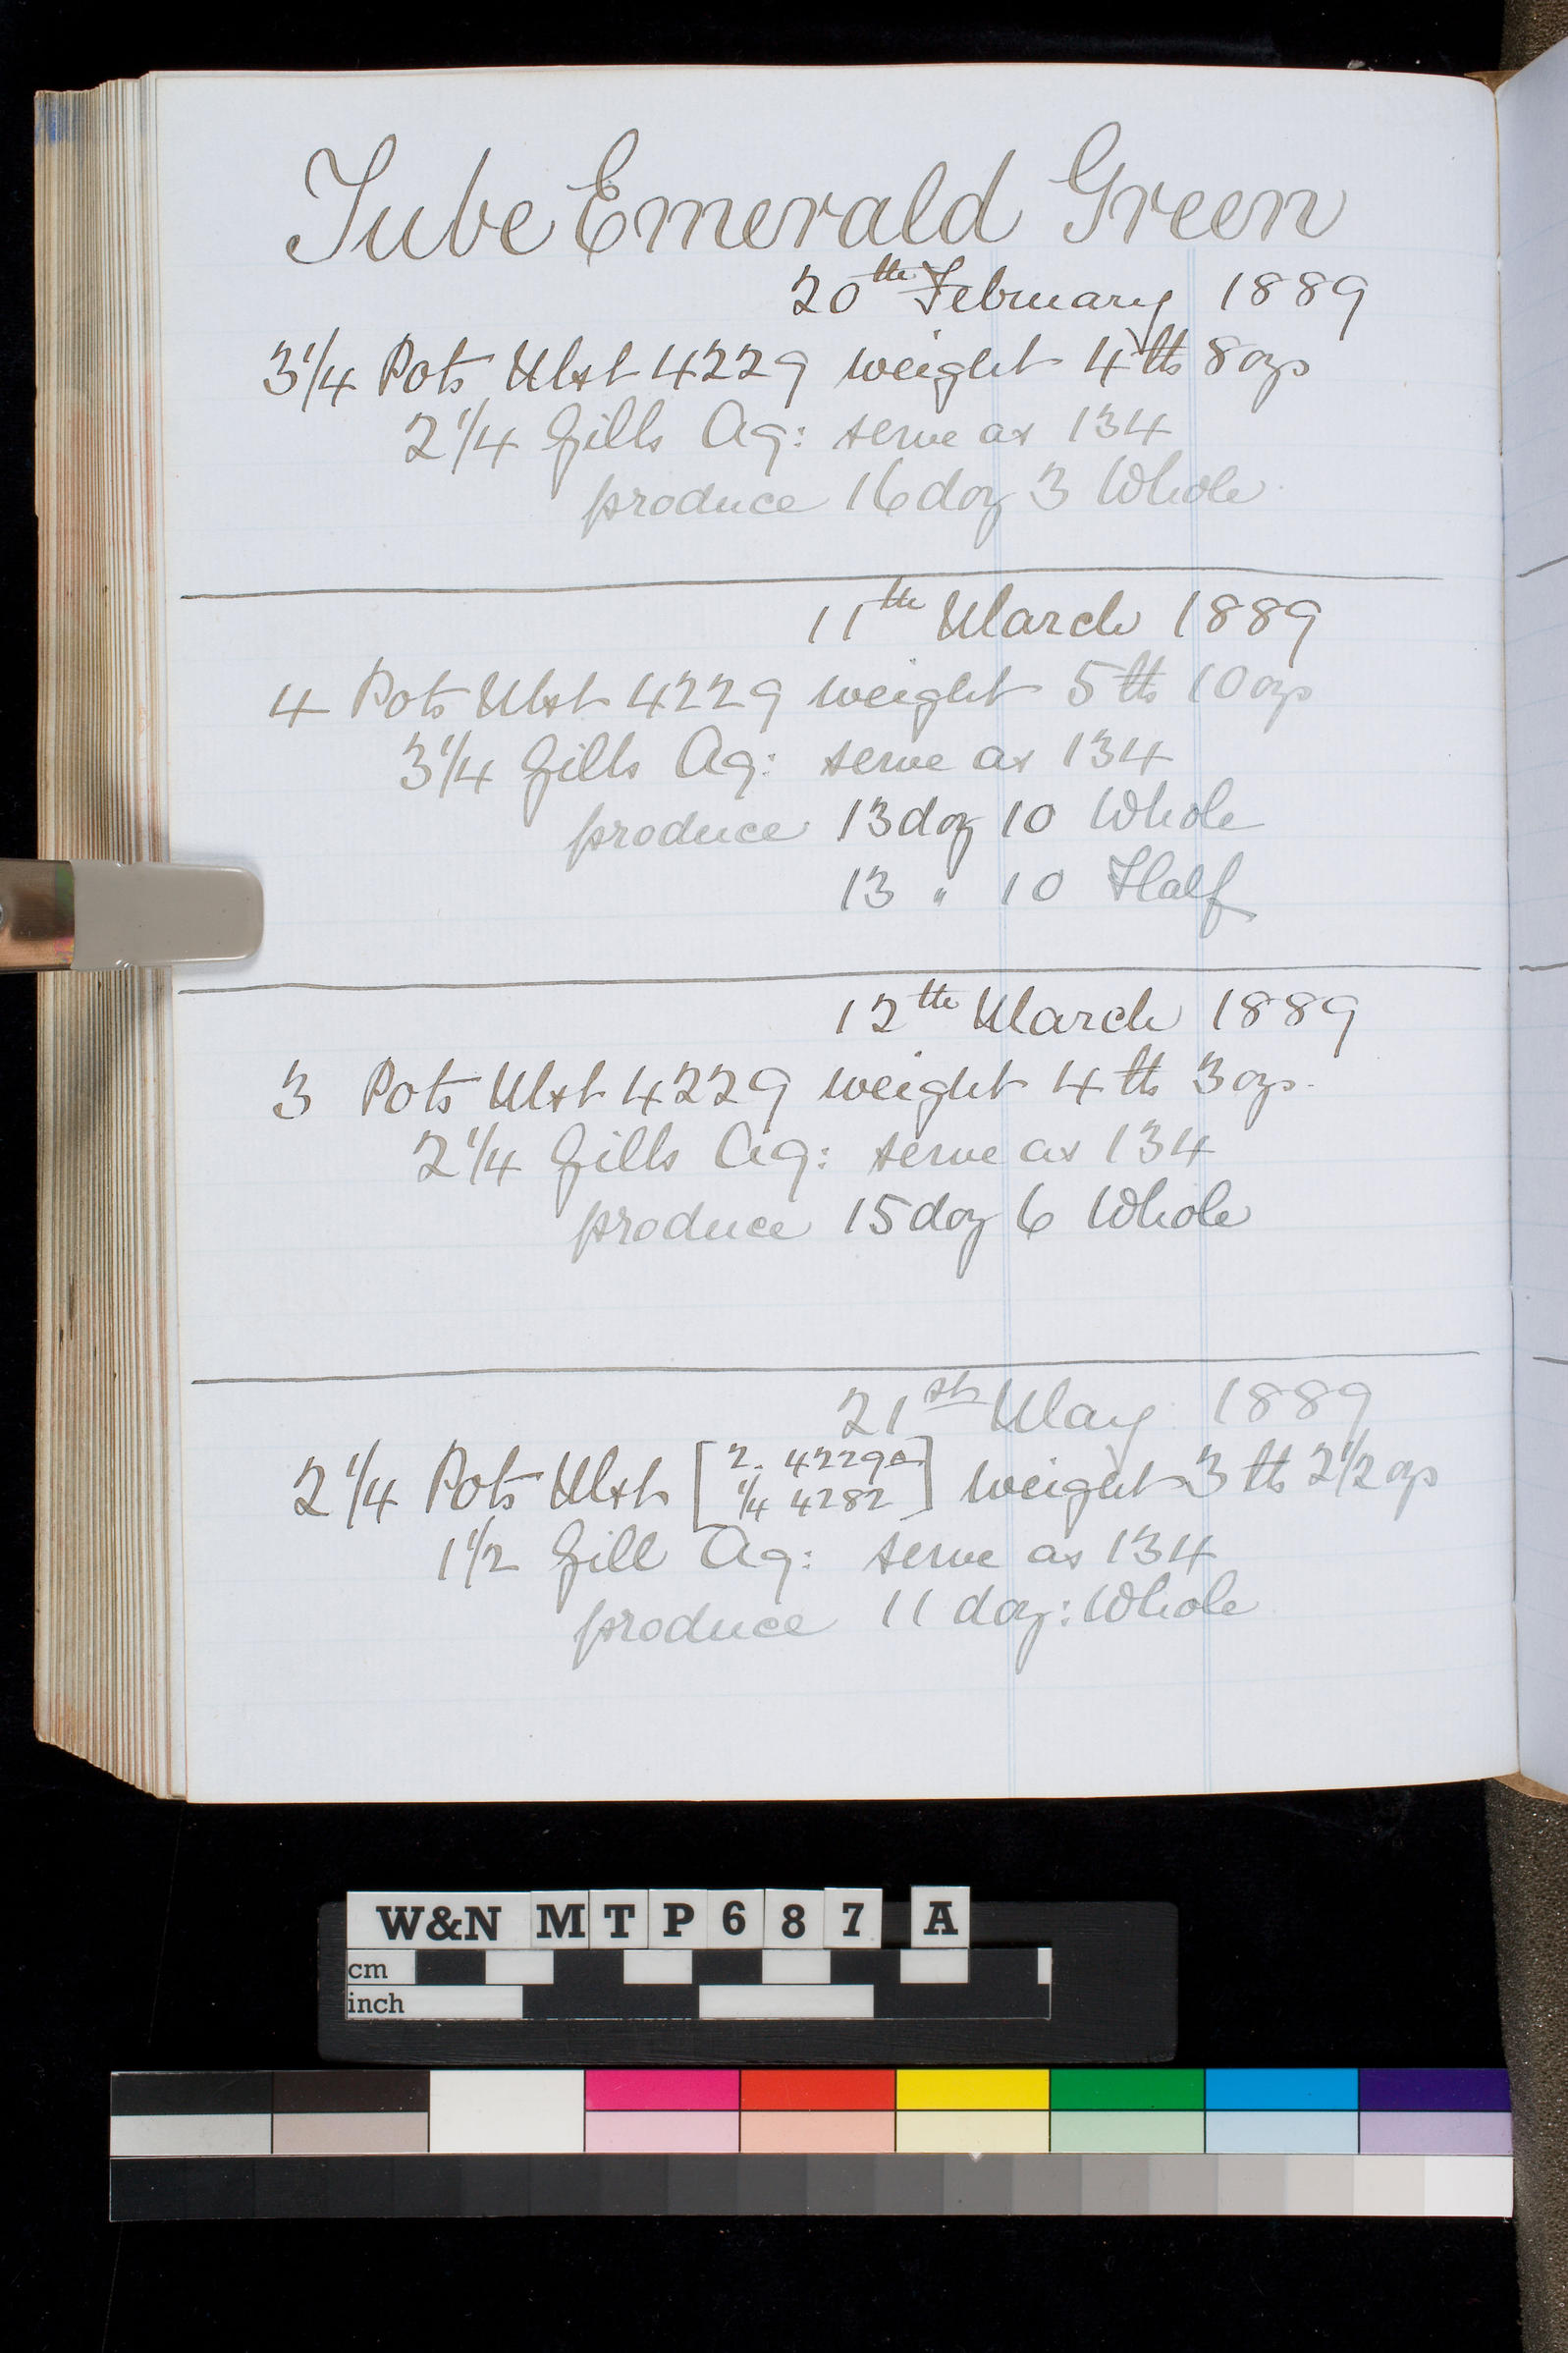 Tube Emerald Green
20th February 1889
3 1/4 Pots Mxt 4229 weight 4 lb 8 ozs
2 1/4 Gills Aq: serve as 134
produce 16 doz 3 Whole
11th March 1889
4 Pots Mxt 4229 weight 5 lb 10 ozs
3 1/4 Gills Aq: serve as 134
produce 13 doz 10 Whole
13 " 10 Half
12th March 1889
3 Pots Mxt 4229 weight 4 lb 3 ozs
2 1/4 Gills Aq: serve as 134
produce 15 doz 6 Whole
21st May 1889
2 1/4 Pots Mxt [2. 4229a 1/4 4282] weight 3 lb 2 1/2 ozs
1 1/2 Gill Aq: serve as 134
produce 11 doz: Whole
W&N MTP687 A
cm
inch